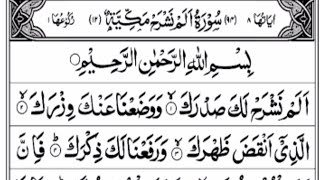 اٰيَاتُهَا ٨ (٩٤) سُوْرَةُ اَلَمْ نَشْرَحْ مَكِّيَّةٌ (١٢) رُكُوْعُهَا ١
بِسْمِ اللّٰهِ الرَّحْمٰنِ الرَّحِيْمِ
اَلَمْ نَشْرَحْ لَكَ صَدْرَكَ ١ وَوَضَعْنَا عَنْكَ وِزْرَكَ ٢
الَّذِيْٓ اَنْقَضَ ظَهْرَكَ ٣ وَرَفَعْنَا لَكَ ذِكْرَكَ ٤ فَاِنَّ